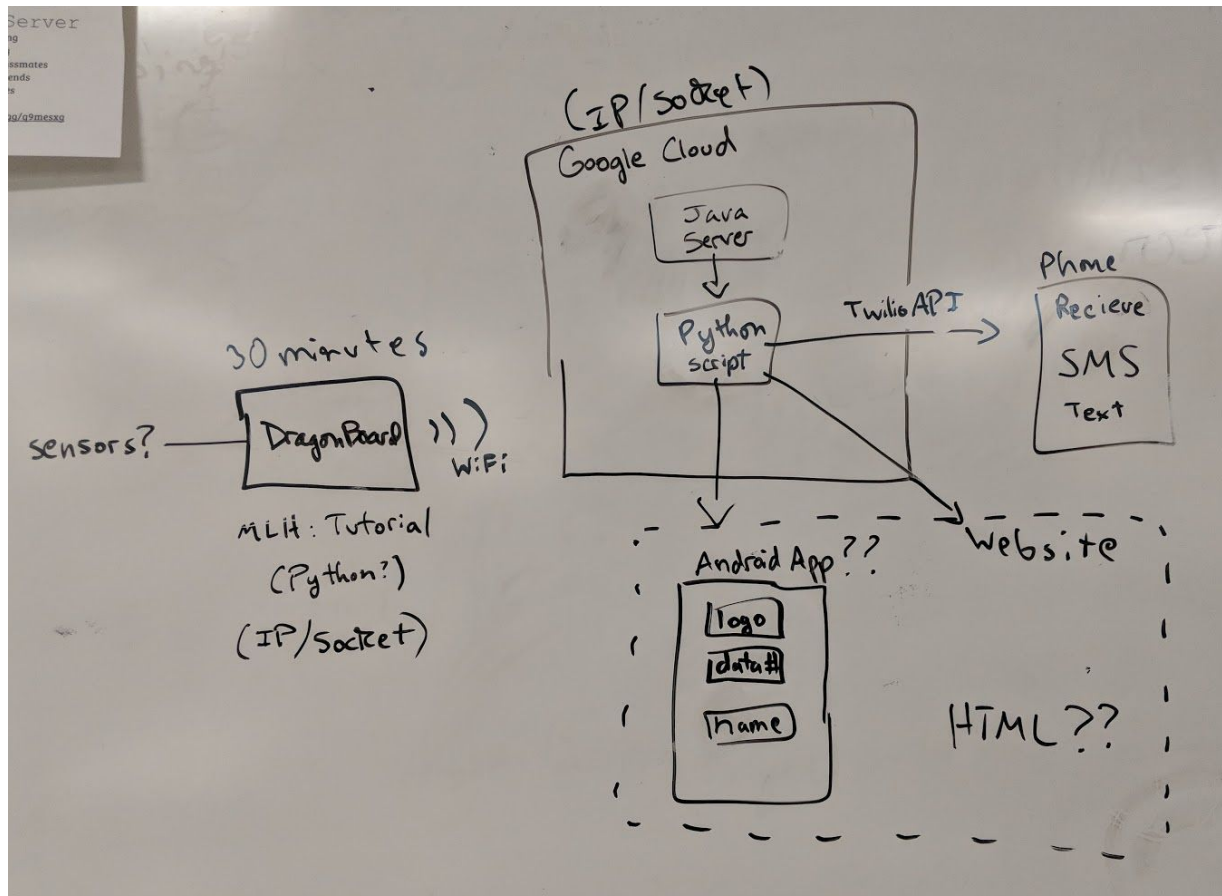 Server
ssmates
ends
(IP/Socket)
Google Cloud
Java
Server
Python
script
Twilio API
Phone
Recieve
SMS
Text
30 minutes
sensors?
DragonBoard
WiFi
MLH: Tutorial
(Python?)
(IP/Socket)
Android App??
logo
data#
name
Website
HTML??